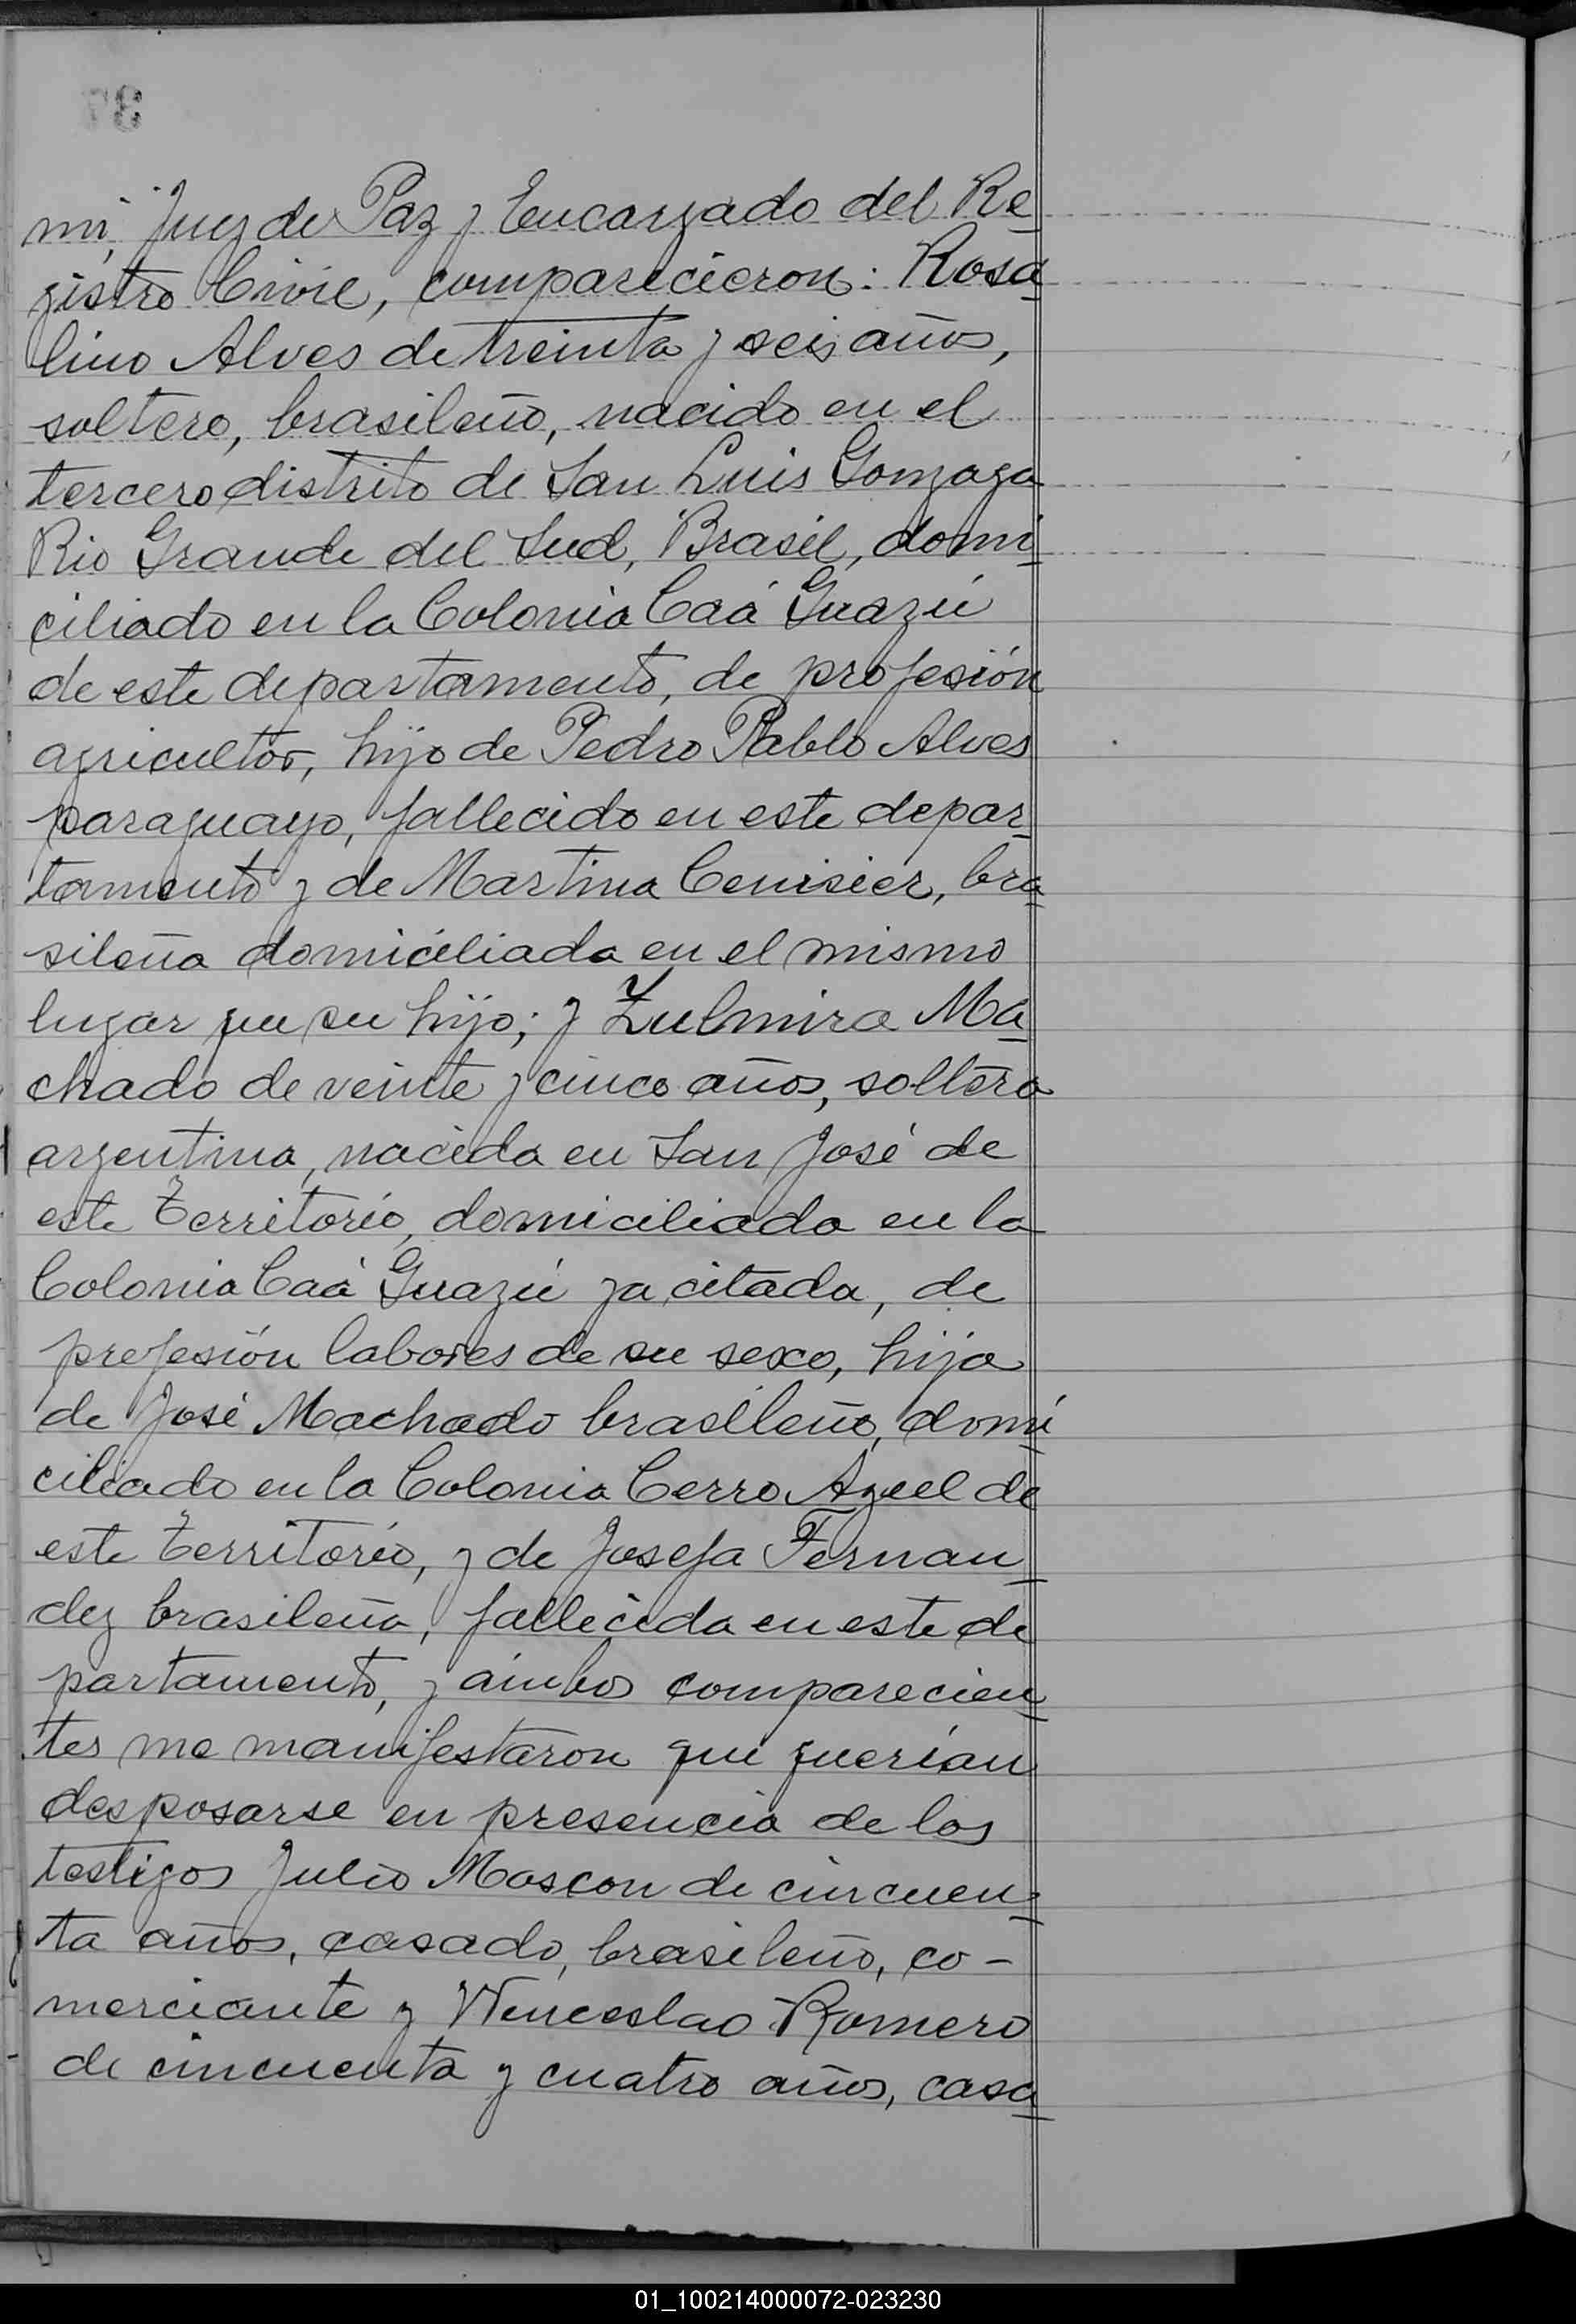 mi, Juez de Paz y Encargado del Re
gistro Civil, comparecieron: Rosa
lino Alves de treinta y seis años,
soltero, brasileño, nacido en el
tercero distrito de San Luis Gonzaga
Rio Grande del Sud, Brasil, domi
ciliado en la Colonia Caá Guazú
de este departamento, de profesión
agricultor, hijo de Pedro Pablo Alves
paraguayo, fallecido en este depar
tamento y de Martina Cenisier, bra
sileña domiciliada en el mismo
lugar que su hijo; y Zulmira Ma
chado de veinte y cinco años, soltera
argentina, nacida en San José de
este Territorio, domiciliada en la
Colonia Caá Guazú ya citada, de
profesión labores de su sexo, hija
de José Machado brasileño, domi
ciliado en la Colonia Cerro Azul de
este Territorio, y de Josefa Fernan
dez brasileña, fallecida en este de
partamento, y ambos comparecien
tes me manifestaron que querían
desposarse en presencia de los
testigos Julio Mascon de cincuen
ta años, casado, brasileño, co-
merciante y Wenceslao Romero
de cincuenta y cuatro años, casa
01_100214000072-023230